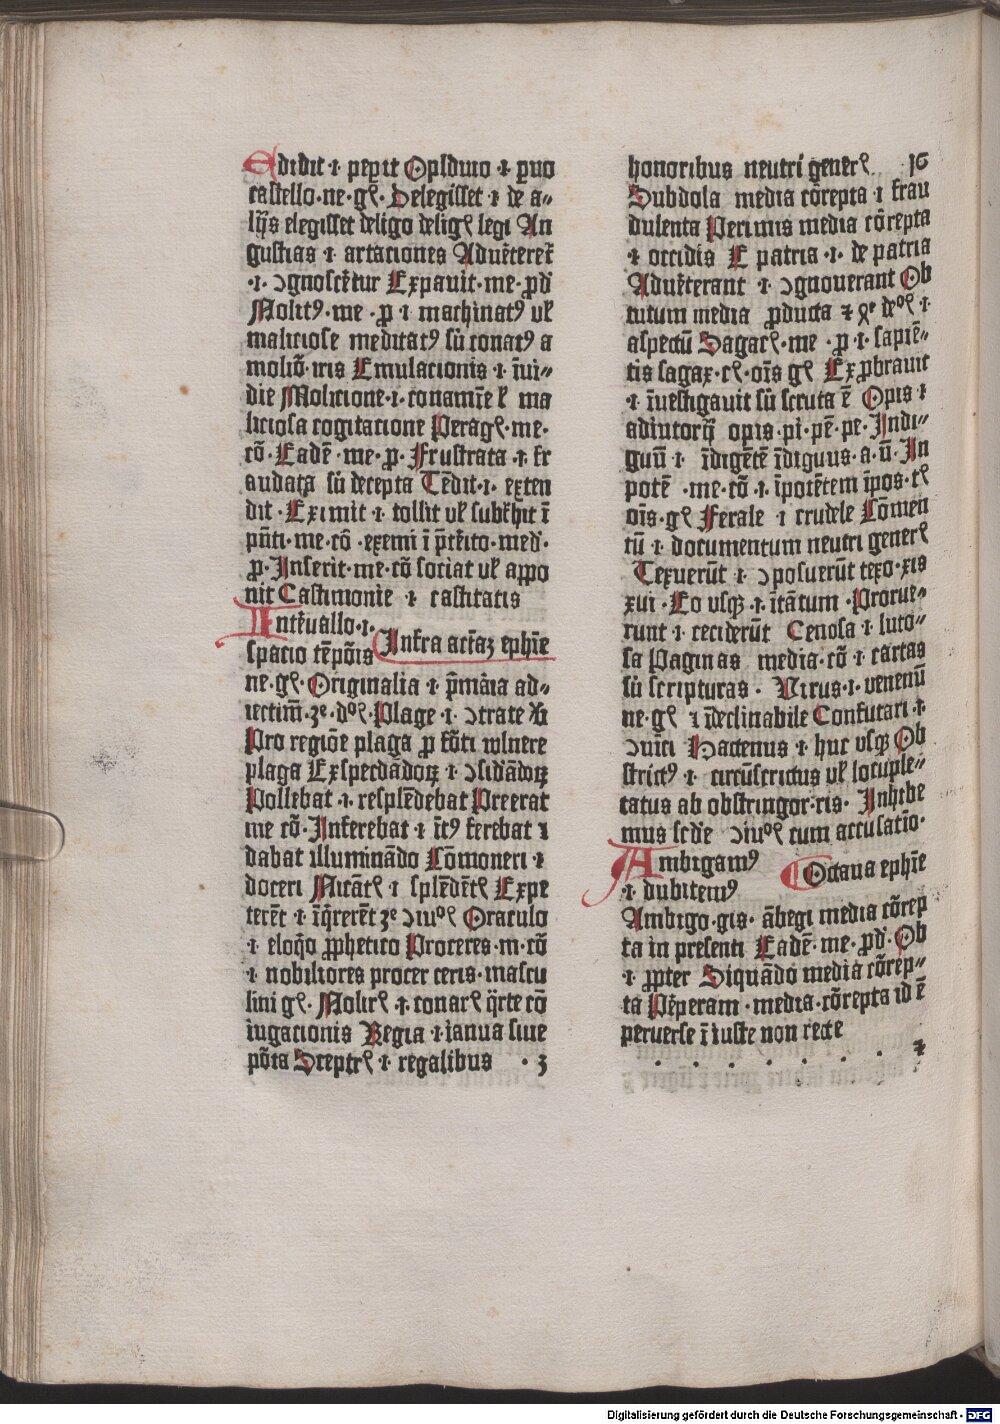 Edidit ·i· peꝑit Opīdulo ·i· ꝑuo
castello·ne·gꝭ· Delegisset ·i· de a⸗
lijs elegisset deligo deligꝭ legi An
gustias ·i· artaciones Aduēteret̄
·i· ↄgnoscēt̄ur Expauit·me·ꝓd̄
Molitꝰ·me·ꝓ·i· machinatꝰ vl̄
maliciose meditatꝰ sil̄ conatꝰ a
molio᷑·iris Emulacionis ·i· īui⸗
die Molicione·i·conamīe vl̄ ma
liciosa cogitacione Peragꝭ·me·
cō·Eadē·me·ꝓ·Frustrata ·i· fr
audata sil̄ decepta Tēdit·i· exten
dit·Eximit ·i· tollit vl̄ subt̄hit ī
pn̄ti·me·cō·exemi ī p̄t̄ito·med̄·
ꝓ·Inserit·me·cō sociat vl̄ appo
nit Castimonie ·i· castitatis
Int̄uallo·i·
spacio tēpōis
Infra octaꝫ ephīe
ne·gꝭ·Originalia ·i· pͥmāia ad⸗
iectiuū·ꝫᵉ·dᵒꝭ·Plage ·i· ↄtrate
Pro regiōe plaga ꝓ fōti wlnere
plaga Expectādoꝝ ·i· ↄsidādoꝝ
Pollebat ·i· resplēdebat Preerat
me cō·Inferebat ·i· īt̄ꝰ ferebat ·i·
dabat illuminādo Cōmoneri ·i·
doceri Nitātꝭ ·i· splēdētꝭ Expe
terēt ·i· īq̄rerēt ꝫᵉ ↄiuᵒꝭ Oraculo
·i· eloq̄o ꝓphetico Proceres·m·cō
·i· nobiliores procer ceris·mascu
lini gꝭ·Molirꝭ ·i· conarꝭ q̄rte cō
iugacionis Regia ·i· ianua siue
pōta Sceptrꝭ ·i· regalibus ·ꝫ
honoribus neutri generꝭ 16
Subdola media cōrepta ·i· frau
dulenta Perimis media cōrepta
·i· occidis E patria ·i· de patria
Aduēterant ·i· ↄgnouerant Ob
tutum media ꝓducta
aspectū Sagacꝭ·me·ꝓ·i·sapiē⸗
tis sagax·cꝭ·oīs gꝭ Exꝓbrauit
·i· īuestigauit sil̄ scruta ē Opis ·i·
adiutorij opis·pi·pē·pe·Indi⸗
guū ·i· īdigētē īdiguus·a·ū·In
potē·me·cō·i·īpotētem īpos·tꝭ
oīs·gꝭ Ferale ·i· crudele Cōmen
tū ·i· documentum neutri generꝭ
Texuerūt ·i· ↄposuerūt texo·xis
xui·Eo vsqꝫ ·i· ītātum·Prorue⸗
runt ·i· ceciderūt Cenosa ·i· luto⸗
sa Paginas media·cō·i·cartas
sil̄ scripturas·Virus·i·venenū
ne·gꝭ ·i· īdeclinabile Confutari ·i·
ↄuīci Hactenus ·i· huc vsqꝫ Ob
strictꝰ ·i· circūscrictus vl̄ locuple⸗
tatus ab obstringor·ris·Inhibe
mus scd̄e ↄiuᵒꝭ cum accusatīo·
Ambigamꝰ
·i· dubitemꝰ
Octaua ephīe
Ambigo·gis·ābegi media cōrep
ta in presenti Eadē·me·ꝓd̄·Ob
·i· ꝓpter Siquādo media cōrep⸗
ta Pēperam·media·cōrepta id ē
peruerse ī iuste non recte
Digitalisierung gefördert durch die Deutsche Forschungsgemeinschaft · DFG